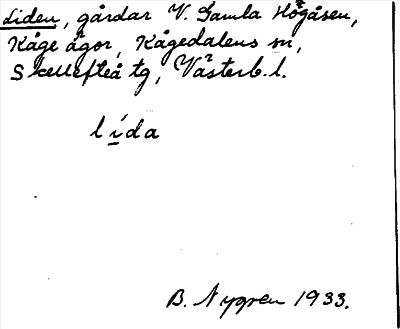 Liden, gårdar V. Gamla Högåsen,
Kåge ägor, Kågedalens sn,
Skellefteå tg, Västerb. l.
lída
B. Nygren 1933.